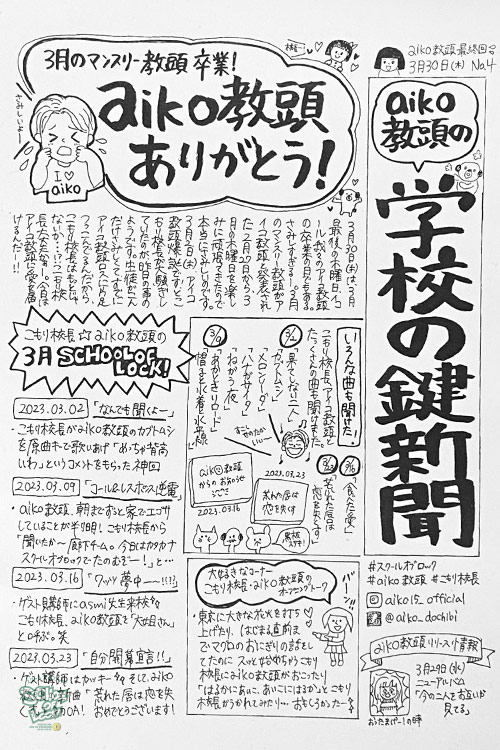 aiko教頭最終回号
3月30日(木) No.4
aiko
教頭の
学校の鍵新聞
3月のマンスリー教頭 卒業!
aiko教頭
ありがとう!
さみしいよー
I♡
aiko
3月30日(木)は3月
最後の木曜日、イコ
ール、我らのアイコ教頭
の卒業の日でもある。
さみしすぎるー。3月
のマンスリー教頭がア
イコ教頭と発表され
た2月27日から3
月の木曜日を楽し
みに頑張ってきたので
本当にさみしい。
3月2日(木)アイコ
アイコ教頭に会え
けるんだー!!
こもり校長☆aiko教頭の
3月 SCHOOL OF
LOCK!
2023.03.02「なんでも聞くよー」
・こもり校長がaiko教頭のカブトムシ
を原曲キーで歌いあげ「めっちゃ音高
いわ」というコメントをもらった神回
2023.03.09「コール&レスポンス逆電」
・aiko教頭、朝までずっと家でエゴサ
していることが半明!こもり校長から
「聞いたか〜廊下チーム。今日はカタカナ
スクールオブロックでたのむぞー!」と…
2023.03.16「グッッ夢中ーー!!!!」
・ゲスト見師にasmi先生来校
こもり校長、aiko教頭を「大姐さん」
と呼ぶ。笑
2023.03.23「自分開幕宣言!!」
・ゲスト講師はカッキー そして、aiko
新曲「荒れた唇は恋を失
くす」OA! おめでとうございます!
いろんな曲も聞けた!
こもり校長、アイコ教頭と
たくさんの曲も聞けました。
3/2
「果てしない二人」
「カブトムシ」
「メロンソーダ」
3/9
「ハナガサイタ」
「ねがう夜」
「あかときリロード」
3/16
「食べた愛」
3/23
「荒れた唇は
恋を失くす」
aiko教頭
からのおゆるし
2023.03.16
2023.03.23
荒れた唇は
恋を失くす
黒板
大好きなコーナー
こもり校長・aiko教頭の
オープニングトーク
・東京に大きな花火を打ち
上げたり、はじまる直前ま
でマグロのおにぎりの話をし
てたのにスッと始めちゃうこもり
校長にaiko教頭がおこったり
「はるかにあいこ、あいこにはるか」とこもり
校長がうかれてみたり…おもしろかったー
バーン!!
#スクールオブロック
#aiko教頭 #こもり校長
aiko15_official
@aiko_dochibi
aiko教頭リリース情報
3月29日(水)
ニューアルバム
「今の二人をお互いが
見てる」